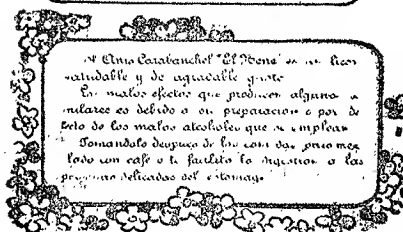 El Anis Carabanchel "El Nene" es un licor
saludable y de agradable gusto
Los malos efectos que producen algunos si
milares es debido a su preparacion o por de
fecto de los malos alcoholes que se emplean
Tomandolo despues de las comidas puro o mez
lado con cafe o te facilita la digestion a las
personas delicadas del estomago